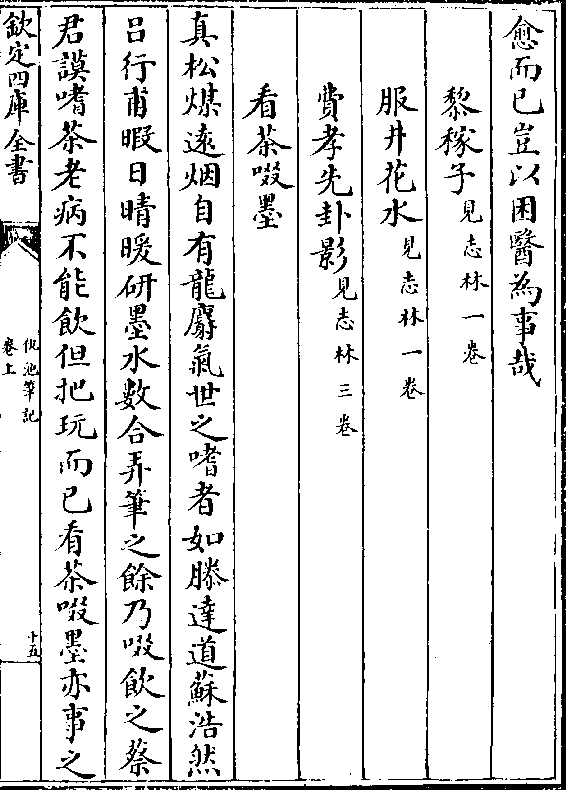 愈而已豈以困醫為事哉
黎檬子見志林一卷
服井花水見志林一卷
費孝先卦影見志林三卷
看茶啜墨
真松煤遠烟自有龍麝氣世之嗜者如滕達道蘇浩然
吕行甫暇日晴暖研墨水數合弄筆之餘乃啜飲之蔡
君謨嗜茶老病不能飲但把玩而已看茶啜墨亦事之
欽定四庫全書
仇池筆記
卷上
十五